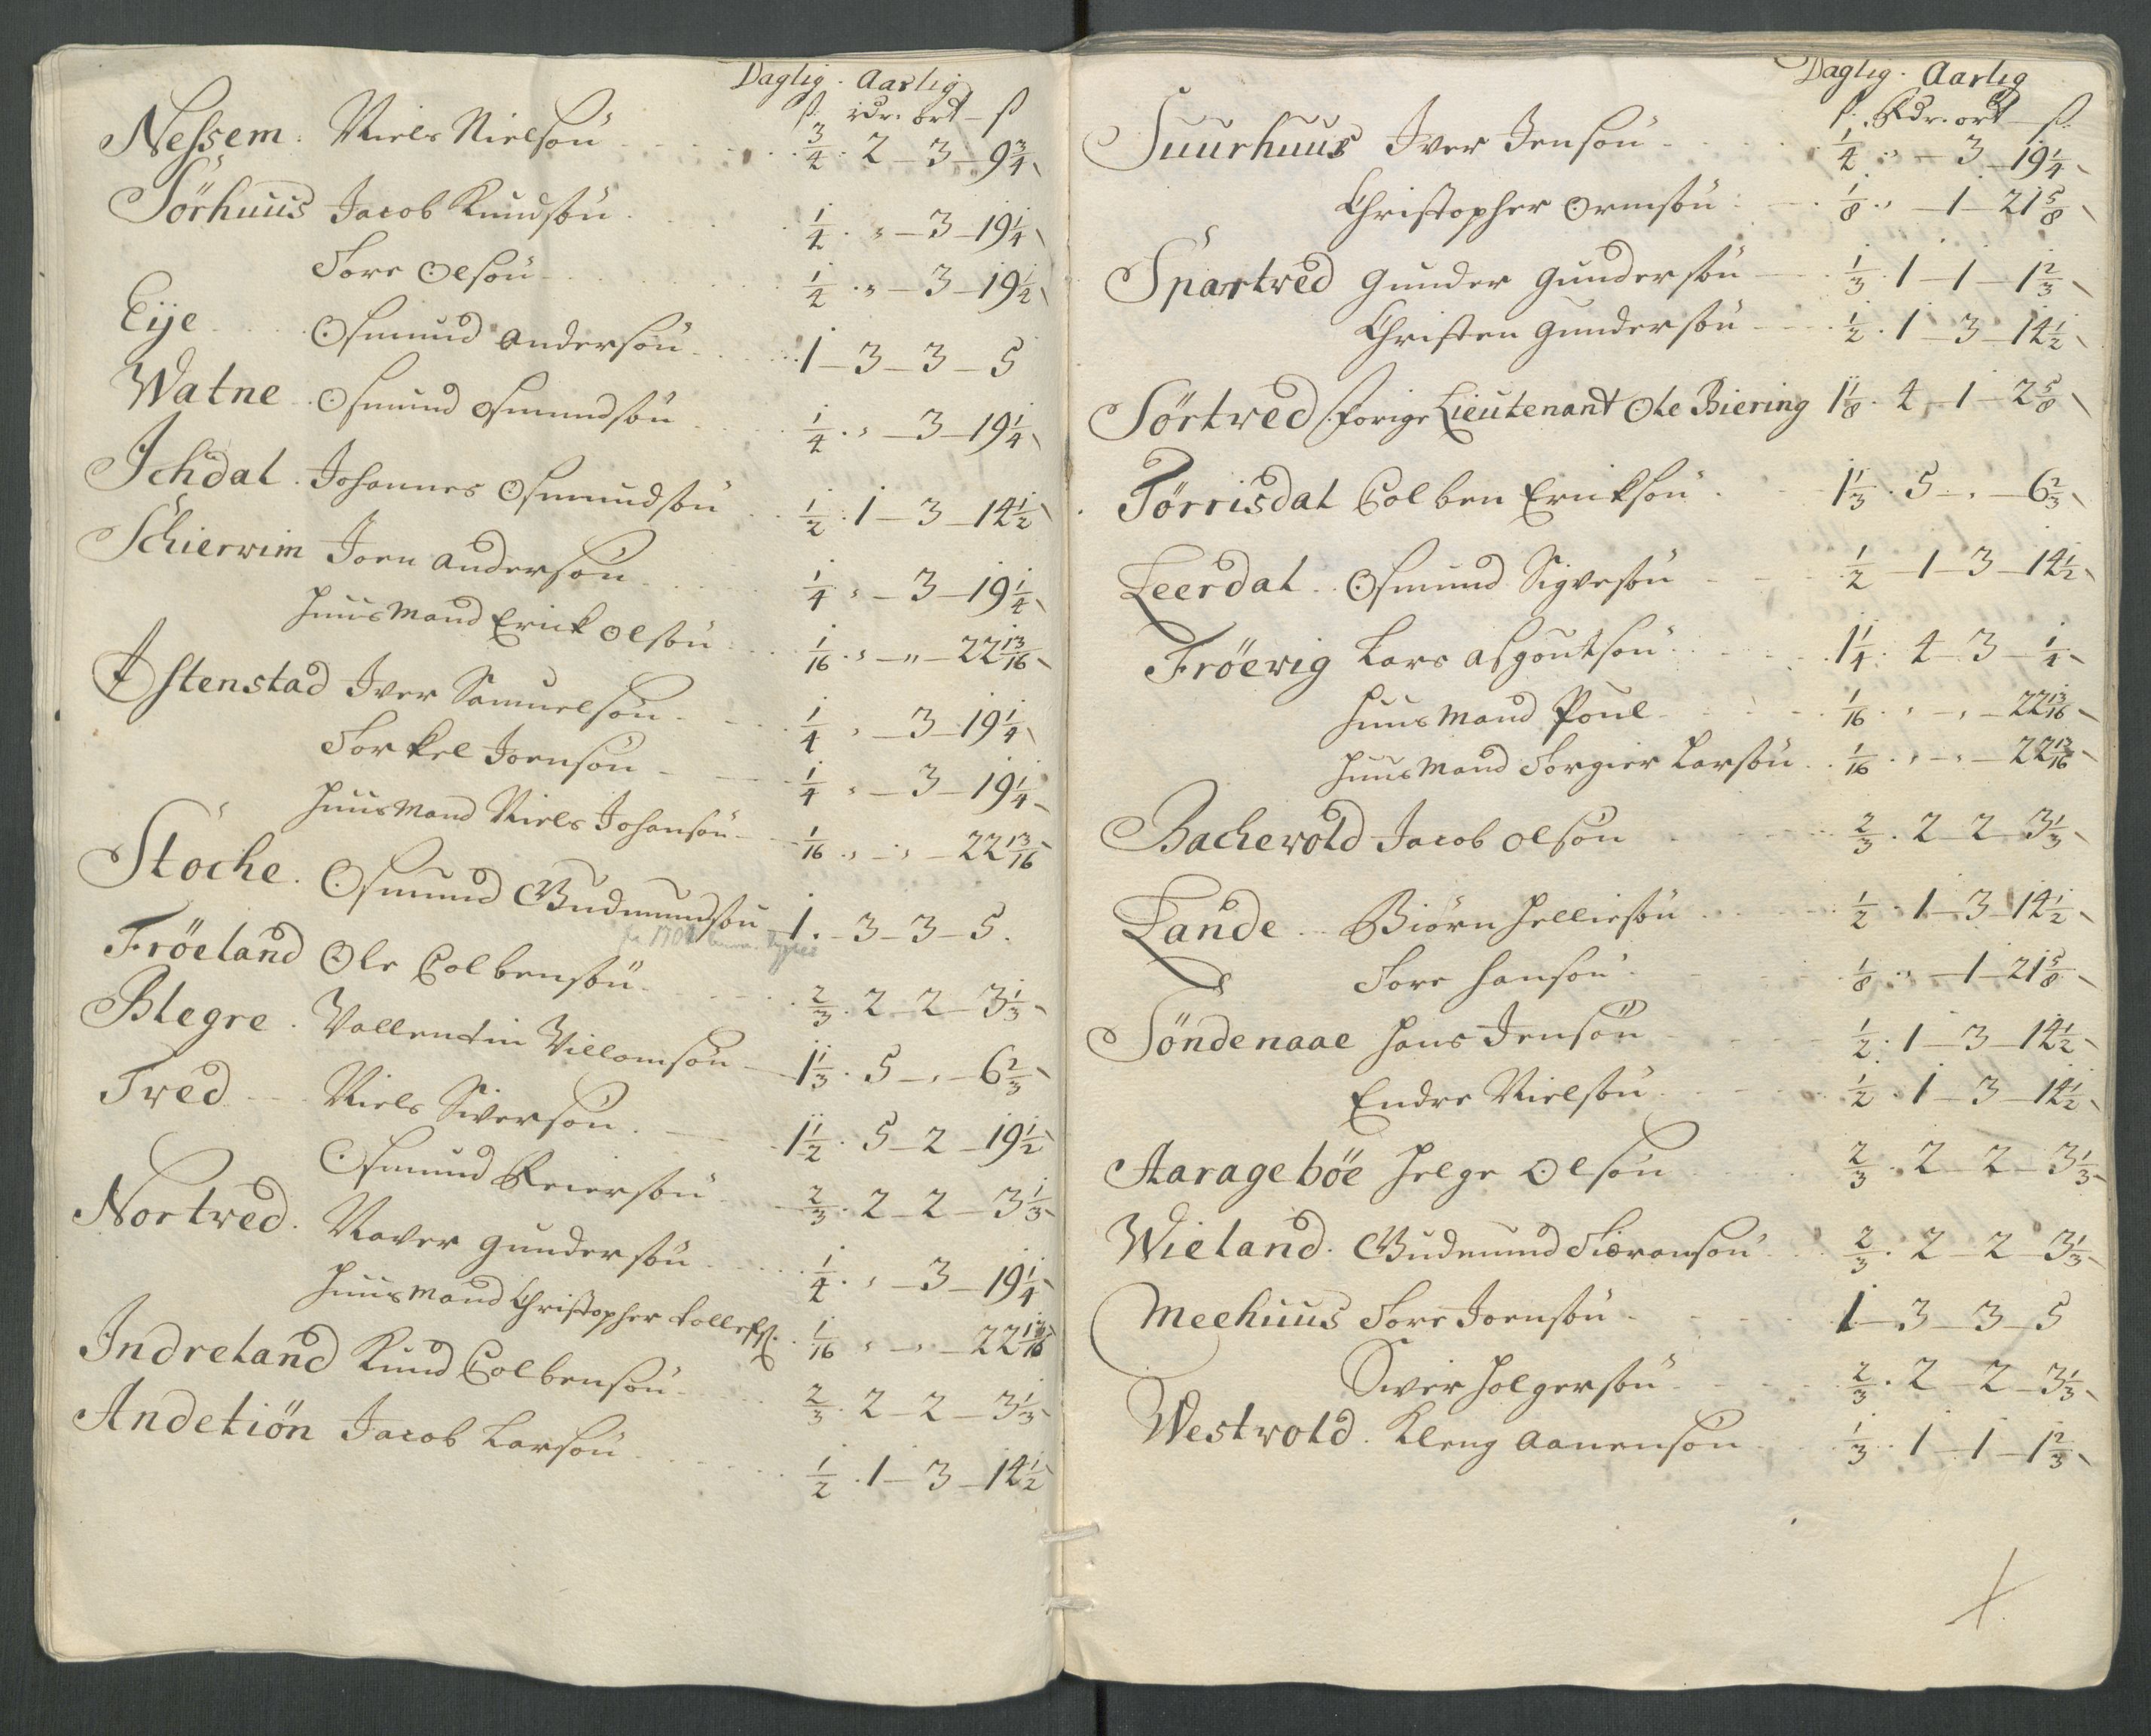 Daglig. Aarlig
ß. rdr. ort – ß
Nessem. Niels Nielsøn 3/4. 2 – 3 – 9 3/4
Sörhuus Jacob Knudsøn. 1/4. " – 3 – 19 1/4
Tore Olsøn 1/4. " – 3 – 19 1/4
Eije Osmund Andersøn 1 – 3 – 3 – 5
Watne Osmund Osmundsøn 1/4. " – 3 – 19 1/4
Ichdal. Johannes Osmundsøn 1/2. 1 – 3 – 14 1/2
Schiervim Joen Andersøn 1/4 " – 3 – 19 1/4
Huusmand Erick Olsøn 1/16. " – " – 22 13/16
Stenstad Iver Samuelsøn 1/4 " – 3 – 19 1/4
Torkel Joensøn 1/4 " – 3 – 19 1/4
Huusmand Niels Johansøn 1/16. " – " – 22 13/16
Stoche. Osmund Gudmundsøn 1. – 3 – 3 – 5.
Fröeland Ole Colbensøn 2/3. 2 – 2 – 3 1/3
Blegre. Vallentin Villomsøn 1 1/3. 5 – " – 6 2/3
Tved Niels Siversøn. 1 1/2. 5 – 2 – 19 1/2
Osmund Reiersøn 2/3. 2 – 2 – 3 1/3
Nortved. Naver Gundersøn 1/4. " – 3 – 19 1/4
Huusmand Christopher Tollefs. 1/16 " – " – 22 13/16
Indreland Knud Colbensøn 2/3. 2 – 2 – 3 1/3
Andetiön Jacob Larsøn 1/2. 1 – 3 – 14 1/2
Daglig. Aarlig
ß. Rdr. ort – ß.
Suurhuus Iver Jensøn 1/4 " – 3 – 19 1/4
Christopher Ormsøn 1/8. " – 1 – 21 5/8
Spartved Gunder Gundersøn 1/3. 1 – 1 – 1 2/3
Christen Gundersøn 1/2. 1 – 3 – 14 1/2
Sörtved forige Lieutenant Ole Biering 1 1/8. 4 – 1 – 2 5/8
Törrisdal Colben Ericksøn. 1 1/3. 5 – " – 6 2/3
Leerdal. Osmund Sigvesøn 1/2 – 1 – 3 – 14 1/2
Fröevig Lars Asgoutsøn 1 1/4. 4 – 3 – 1/4
Huusmand Poul 1/16. " – " – 22 13/16
Huusmand Torgier Larsøn 1/16. " – " – 22 13/16
Bachevold Jacob Olsøn 2/3. 2 – 2 – 3 1/3
Lande Biørn Helliesøn 1/2. 1 – 3 – 14 1/2
Tore Hansøn. 1/8. " – 1 – 21 5/8
Söndenaae Hans Jensøn 1/2. 1 – 3 – 14 1/2
Endre Nielsøn 1/2. 1 – 3 – 14 1/2
Aarageböe Helge Olsøn 2/3. 2 – 2 – 3 1/3
Wieland. Gudmund Siøransøn 2/3. 2 – 2 – 3 1/3
Meehuus Tore Joensøn 1 – 3 – 3 – 5
Siver Holgersøn 2/3. 2 – 2 – 3 1/3
Westvold. Kleng Aanensøn 1/3. 1 – 1 – 1 2/3